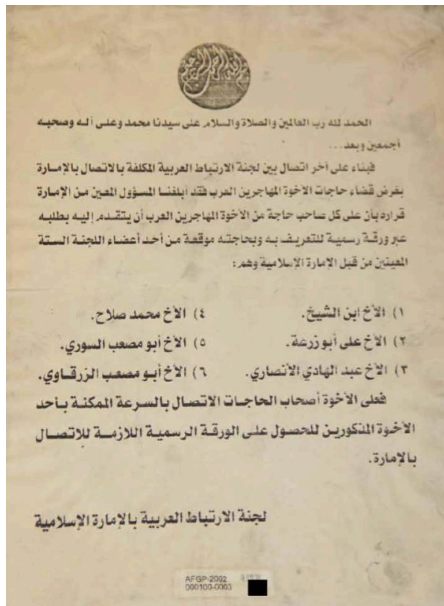 بسم الله الرحمن الرحيم
الحمد لله رب العالمين والصلاة والسلام على سيدنا محمد وعلى آله وصحبه
أجمعين وبعد...
فبناء على آخر اتصال بين لجنة الارتباط العربية المكلفة بالاتصال بالإمارة
بغرض قضاء حاجات الأخوة المهاجرين العرب فقد أبلغنا المسؤول المعين من الإمارة
قراره بأن على كل صاحب حاجة من الأخوة المهاجرين العرب أن يتقدم إليه بطلبه
عبر ورقة رسمية للتعريف به وبحاجته موقعة من أحد أعضاء اللجنة الستة
المعينين من قبل الإمارة الإسلامية وهم:
١) الأخ ابن الشيخ. ٤) الأخ محمد صلاح.
٢) الأخ على أبو زرعة. ٥) الأخ أبو مصعب السوري.
٣) الأخ عبد الهادي الأنصاري. ٦) الأخ أبو مصعب الزرقاوي.
فعلى الأخوة أصحاب الحاجات الاتصال بالسرعة الممكنة بأحد
الأخوة المذكورين للحصول على الورقة الرسمية اللازمة للاتصال
بالإمارة.
لجنة الارتباط العربية بالإمارة الإسلامية
AFGP-2002
000100-0003